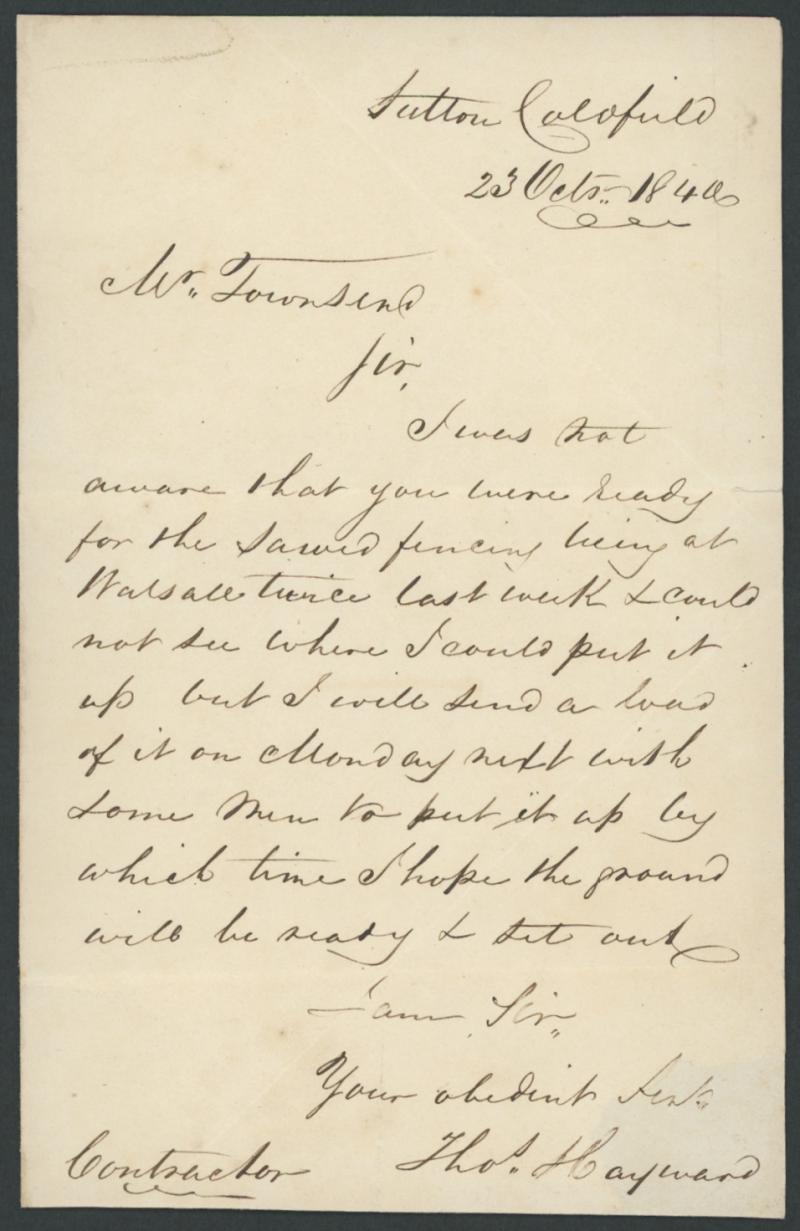 Sutton Coldfield
23 Octr. 1840
Mr. Townsend
Sir,
I was not
aware that you were ready
for the sawed fencing being at
Walsall twice last week & could
not see where I could put it
up but I will send a load
of it on Monday next with
some men to put it up by
which time I hope the ground
will be ready & set out
I am Sir,
Your obedint Servt.
Contractor Thos. Hayward